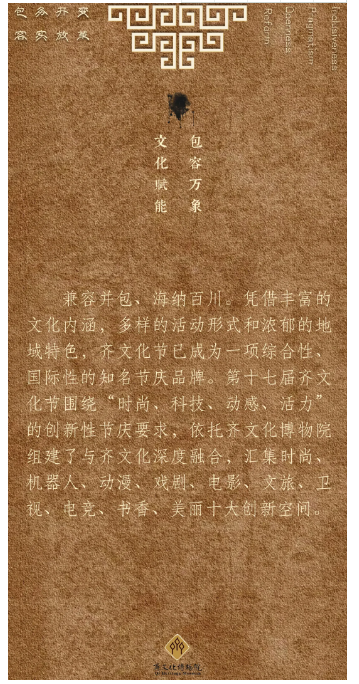 变革
开放
务实
包容
Inclusiveness
Pragmatism
Openness
Reform
包容万象
文化赋能
兼容并包、海纳百川。凭借丰富的
文化内涵，多样的活动形式和浓郁的地
域特色，齐文化节已成为一项综合性、
国际性的知名节庆品牌。第十七届齐文
化节围绕“时尚、科技、动感、活力”
的创新性节庆要求，依托齐文化博物院
组建了与齐文化深度融合，汇集时尚、
机器人、动漫、戏剧、电影、文旅、卫
视、电竞、书香、美丽十大创新空间。
齐文化博物院